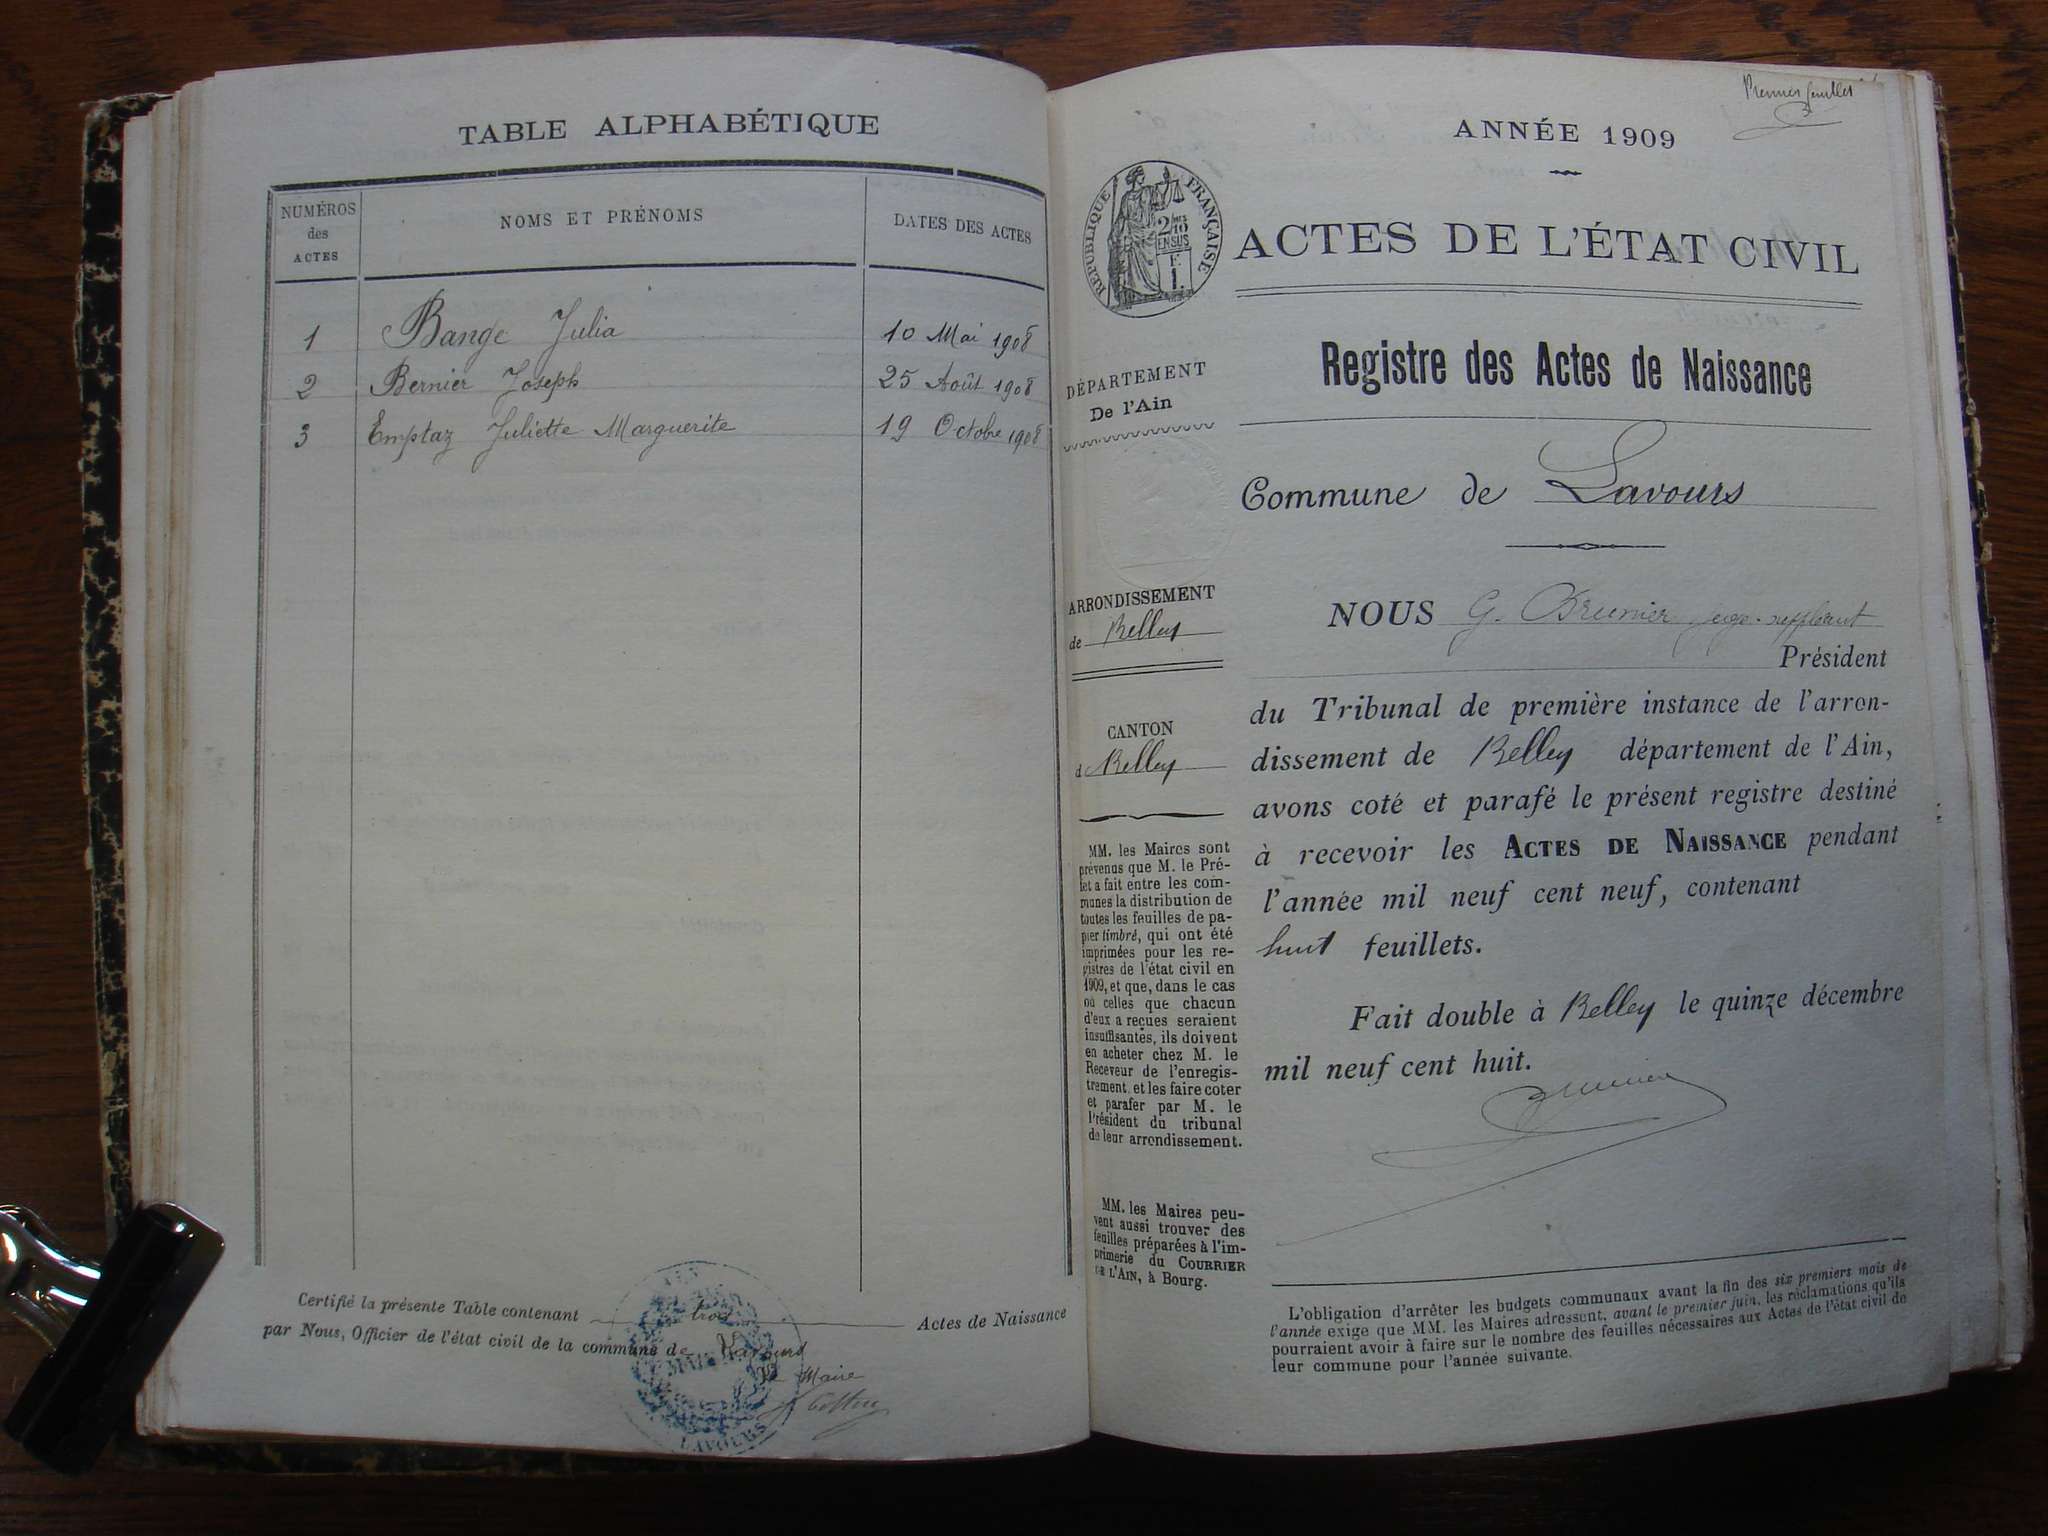 TABLE ALPHABÉTIQUE
NUMÉROS
des
ACTES
NOMS ET PRÉNOMS
DATES DES ACTES
1 Bange Julia 10 Mai 1908
2 Bernier Joseph 25 Août 1908
3 Emptaz Juliette Marguerite 19 Octobre 1908
Certifié la présente Table contenant trois Actes de Naissance
par Nous, Officier de l'état civil de la commune de Lavours
Le Maire
LAVOURS
Premier feuillet
ANNÉE 1909
RÉPUBLIQUE FRANÇAISE
2/10
EN SUS
F.
1.
ACTES DE L'ÉTAT CIVIL
Registre des Actes de Naissance
DÉPARTEMENT
De l'Ain
Commune de Lavours
ARRONDISSEMENT
de Belley
CANTON
d Belley
NOUS G. Brunier juge suppléant
Président
du Tribunal de première instance de l'arron-
dissement de Belley département de l'Ain,
avons coté et parafé le présent registre destiné
à recevoir les ACTES DE NAISSANCE pendant
l'année mil neuf cent neuf, contenant
huit feuillets.
Fait double à Belley le quinze décembre
mil neuf cent huit.
Brunier
MM. les Maires sont
prévenus que M. le Pré-
fet a fait entre les com-
munes la distribution de
toutes les feuilles de pa-
pier timbré, qui ont été
imprimées pour les re-
gistres de l'état civil en
1909, et que, dans le cas
où celles que chacun
d'eux a reçues seraient
insuffisantes, ils doivent
en acheter chez M. le
Receveur de l'enregis-
trement, et les faire coter
et parafer par M. le
Président du tribunal
de leur arrondissement.
MM. les Maires peu-
vent aussi trouver des
feuilles préparées à l'im-
primerie du COURRIER
DE L'AIN, à Bourg.
L'obligation d'arrêter les budgets communaux avant la fin des six premiers mois de
l'année exige que MM. les Maires adressent, avant le premier juin, les réclamations qu'ils
pourraient avoir à faire sur le nombre des feuilles nécessaires aux Actes de l'état civil de
leur commune pour l'année suivante.